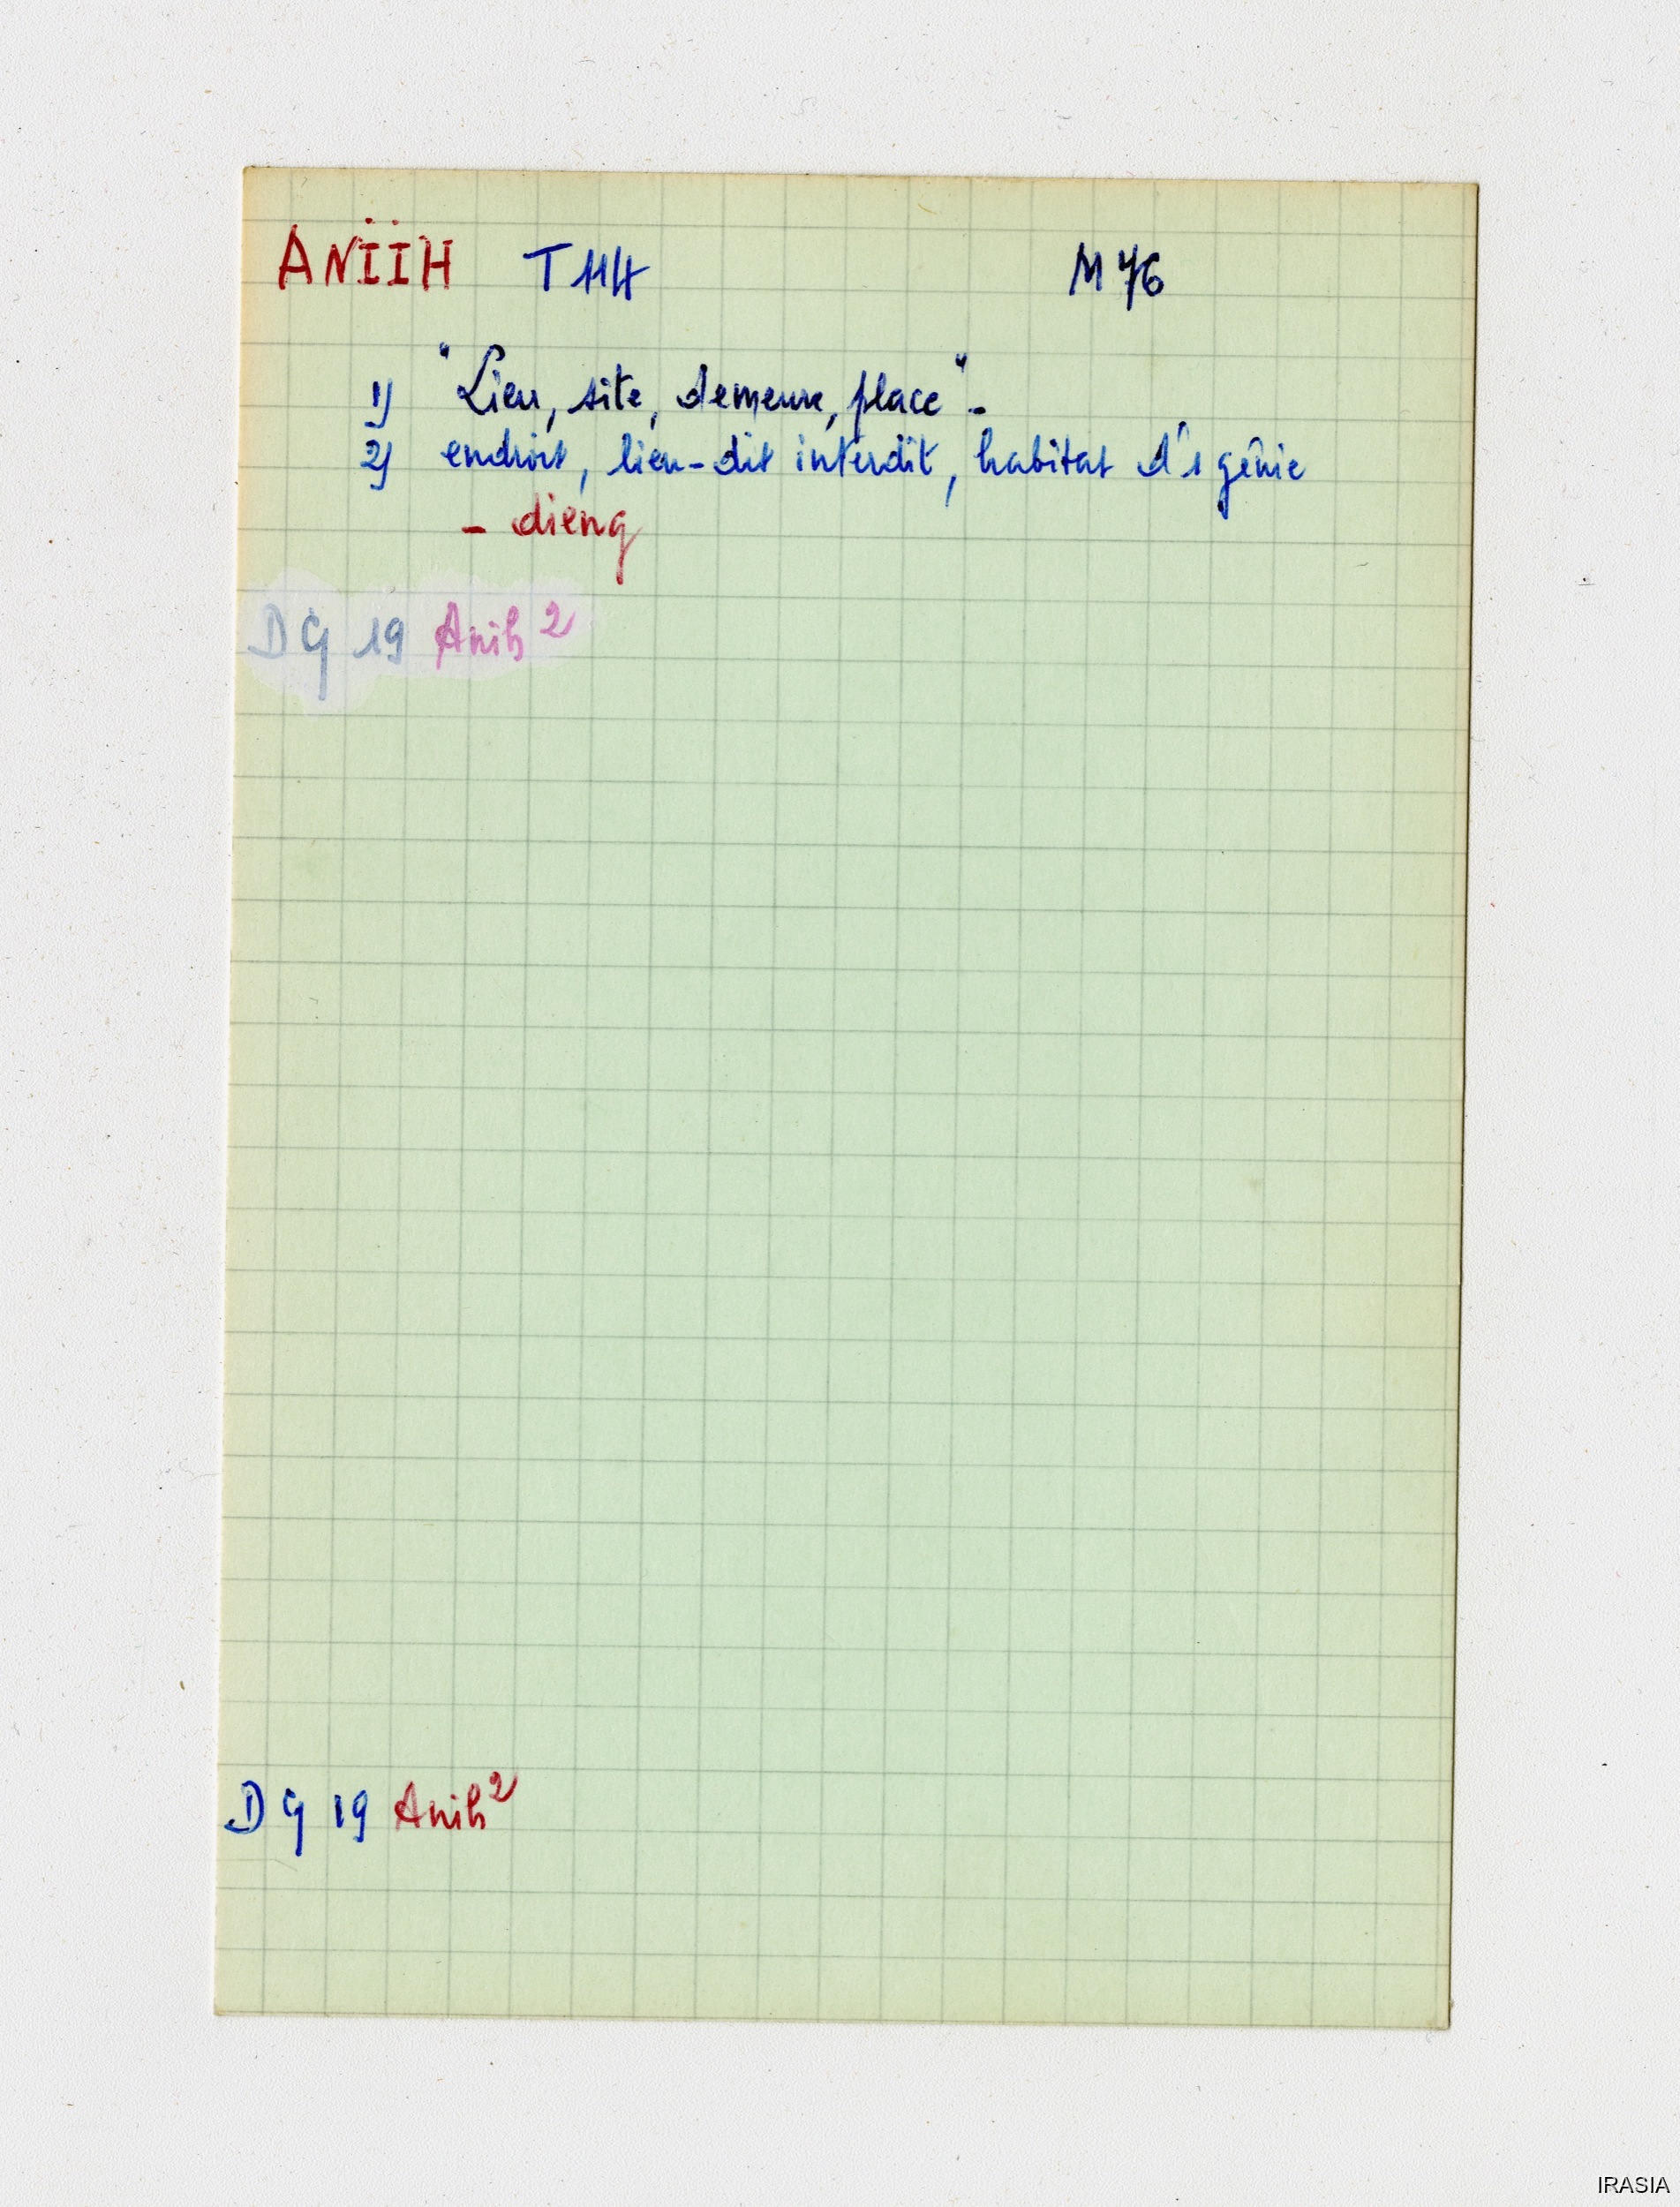 ANÏÏH T114 M 76
1) "Lieu, site, demeure, place" -
2) endroit, lieu-dit interdit, habitat d'1 génie
- dieng
DG 19 Anih 2
DG 19 Anih 2
IRASIA